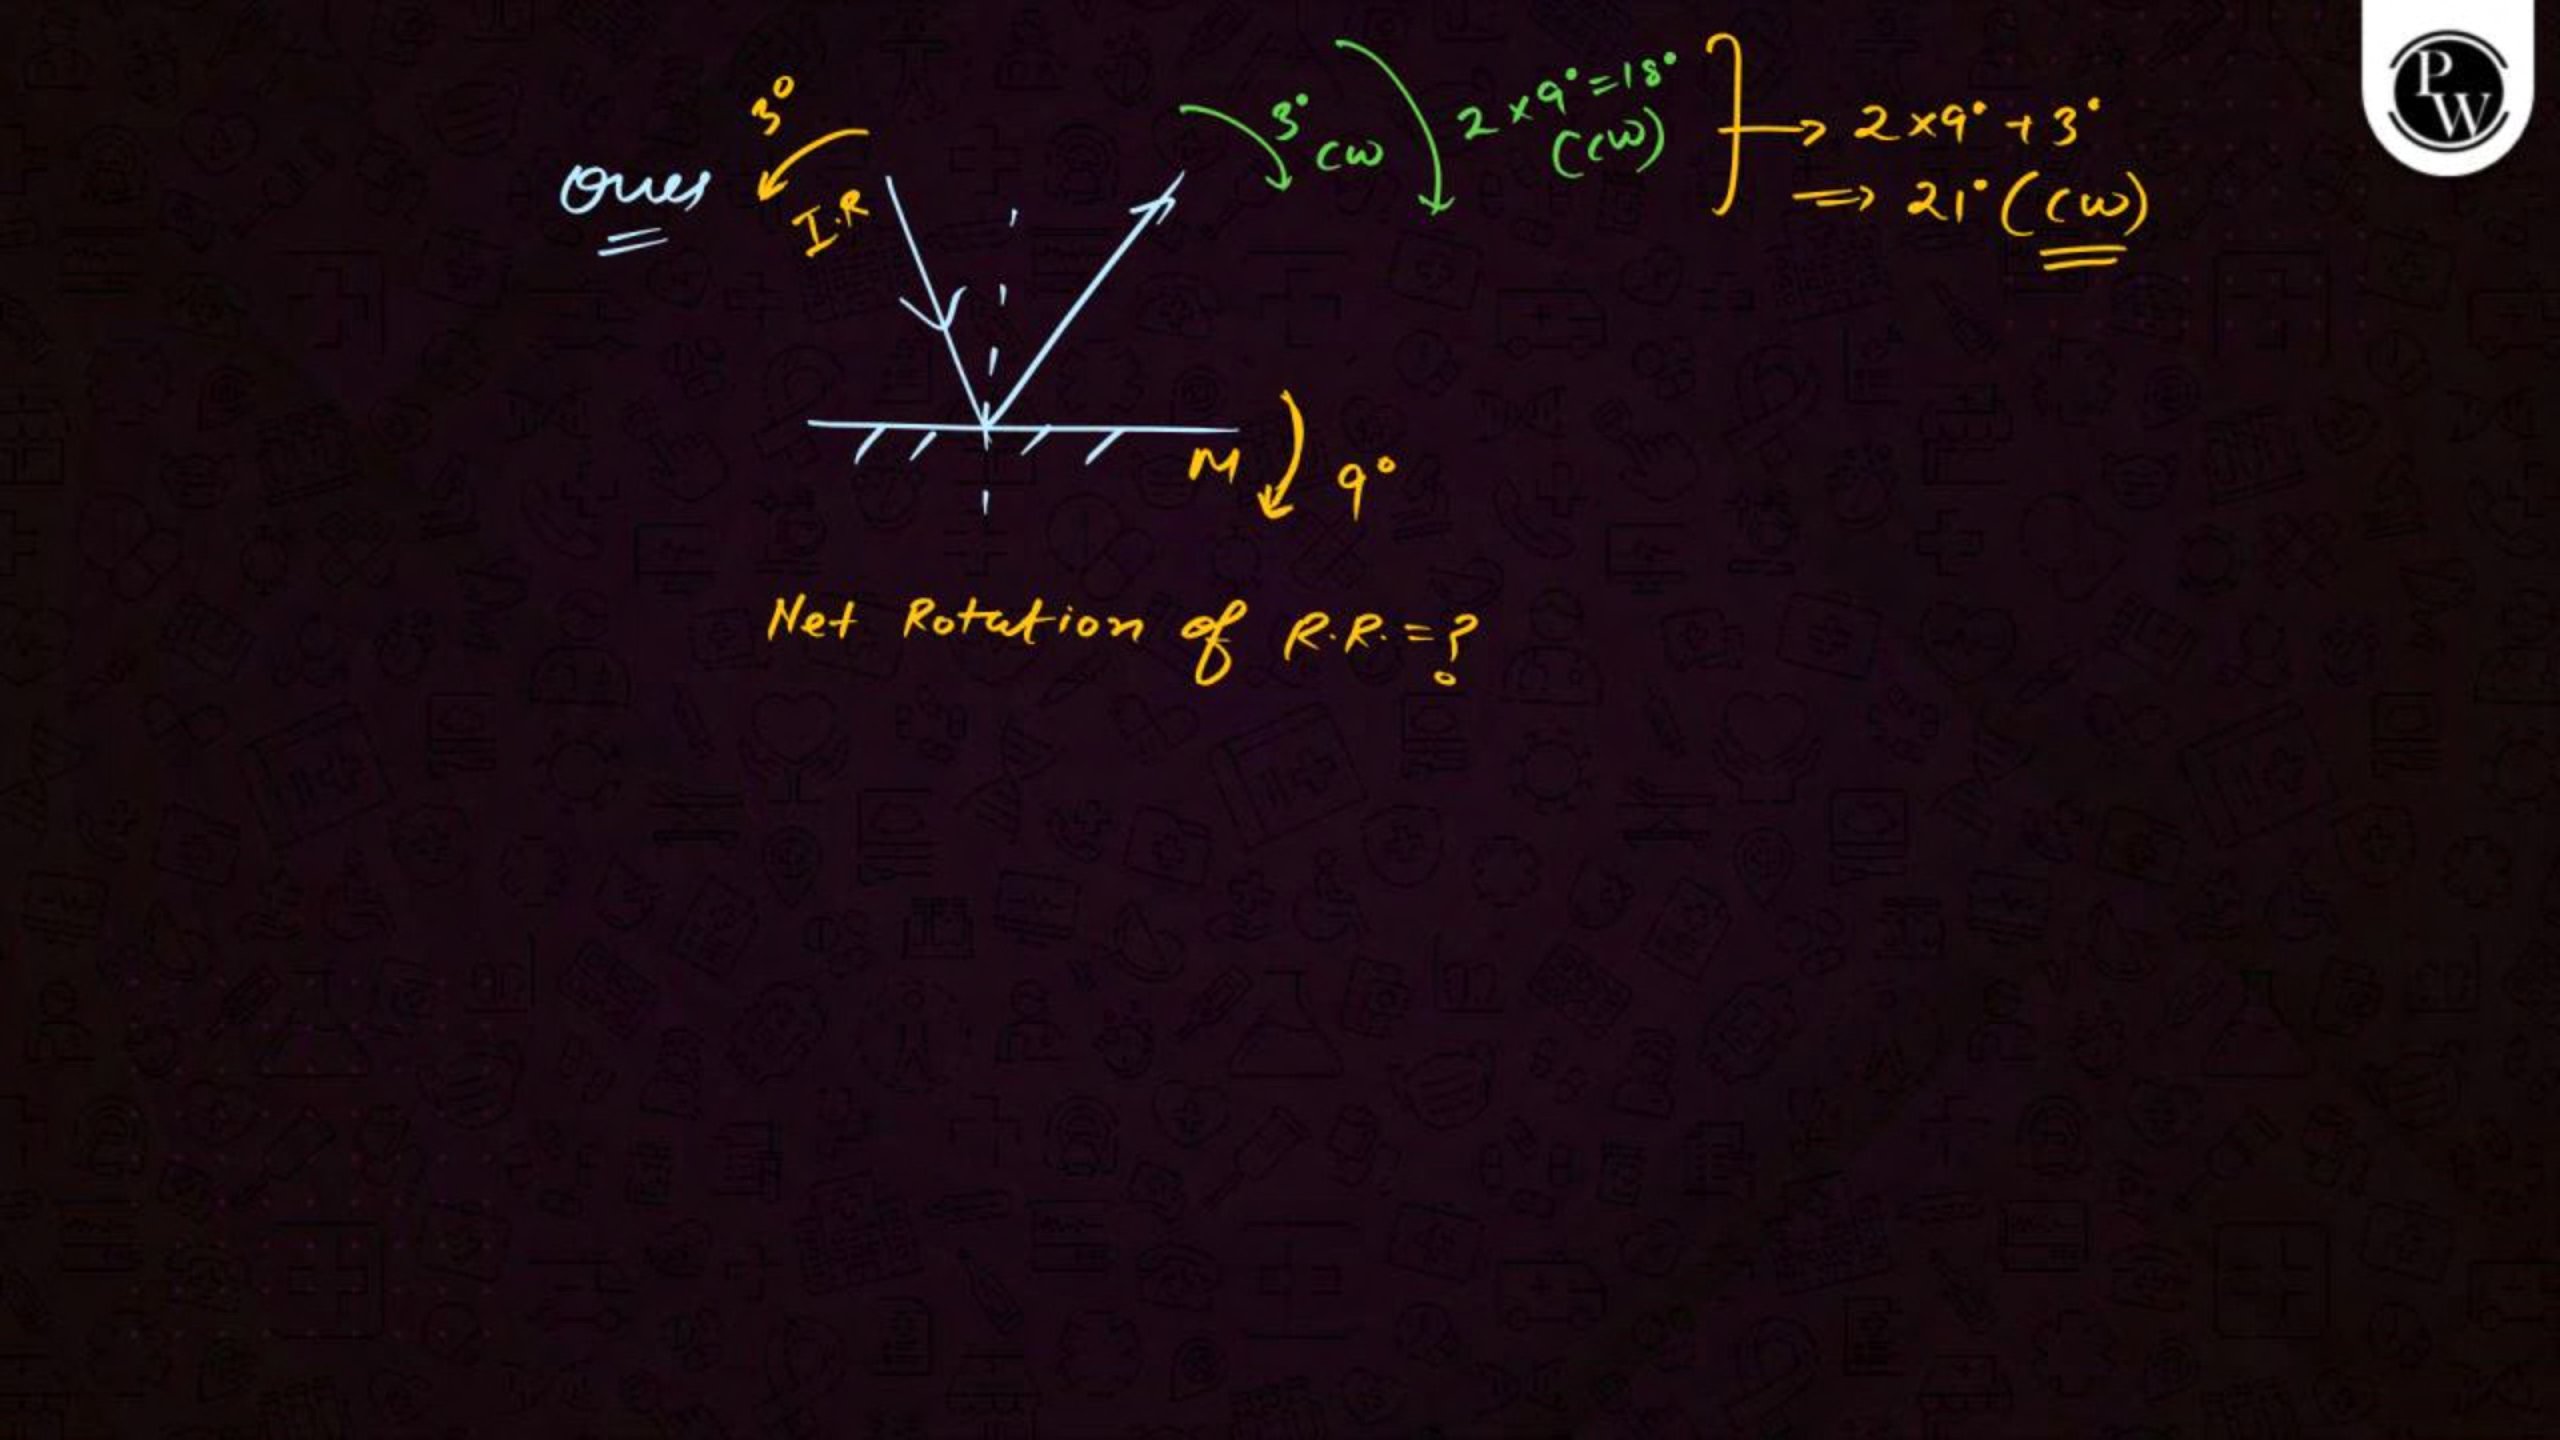 Ques
3°
I.R
3° CW
2×9°=18°
(CW)
→ 2×9°+3°
⇒ 21° (CW)
M
9°
Net Rotation of R.R. = ?
PW